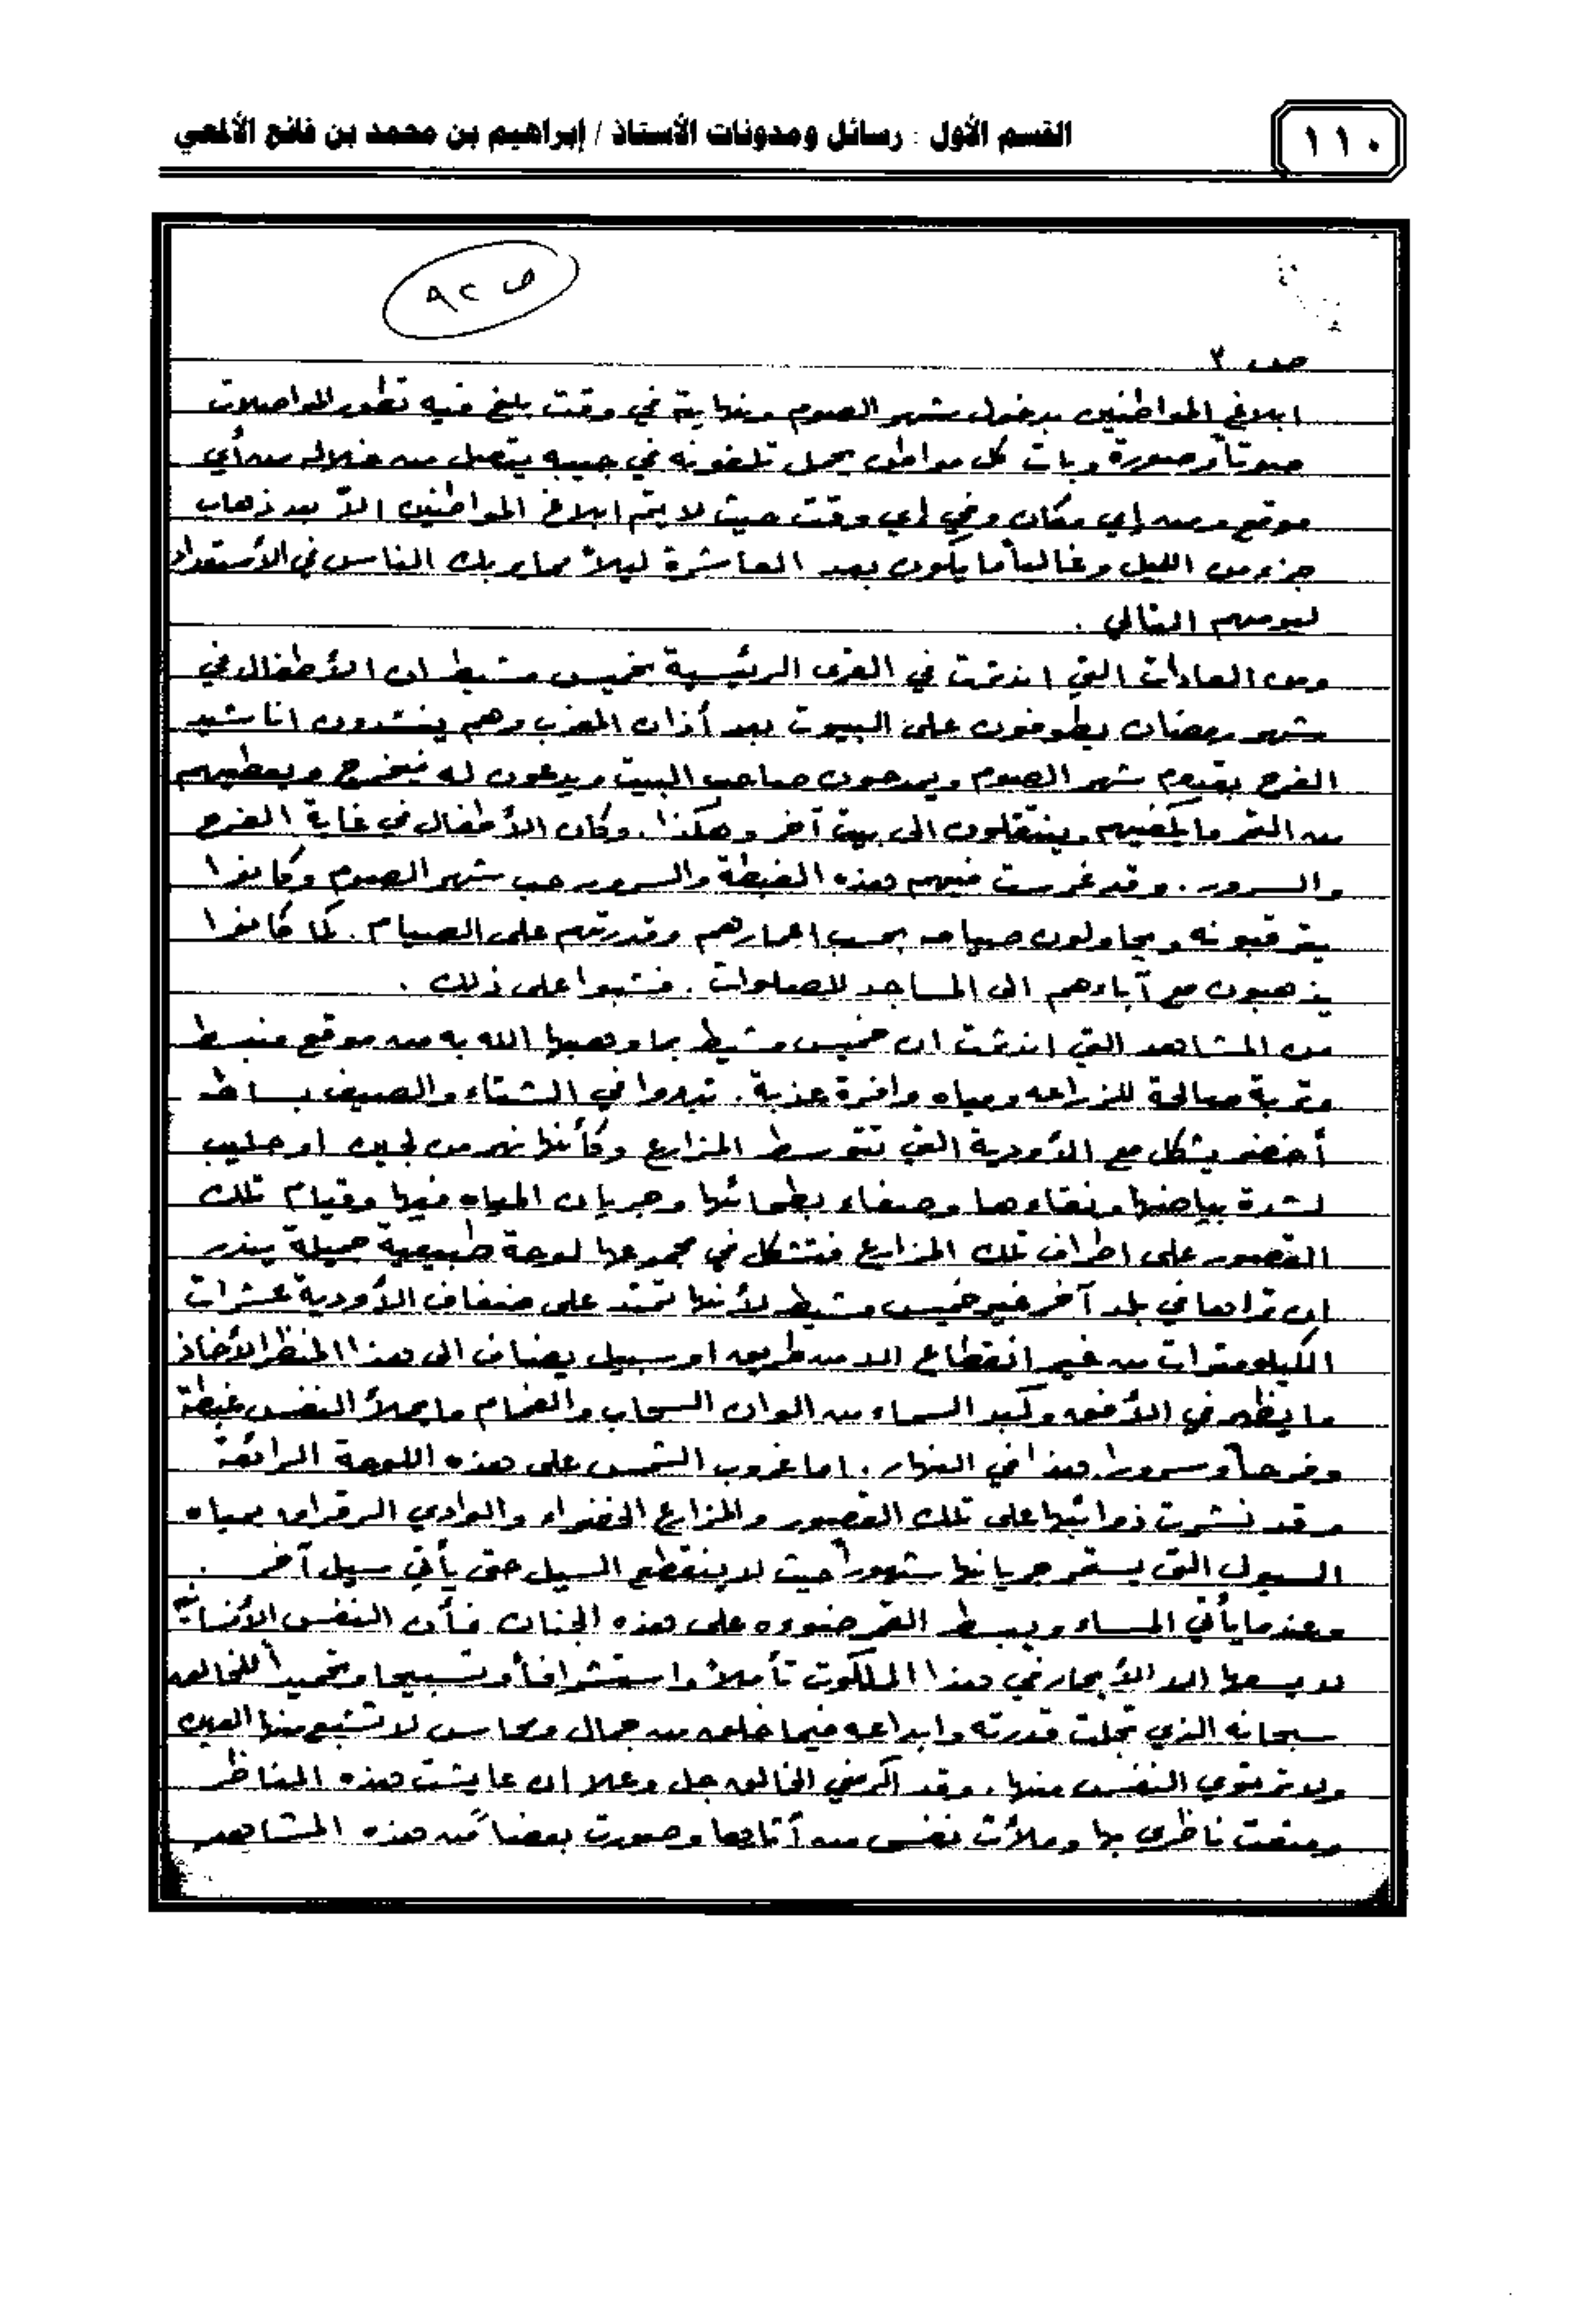 ١١٠
القسم الأول : رسائل ومدونات الأستاذ / إبراهيم بن محمد بن فائع الألمعي
ص ٩٢
ص ٣
ابلاغ المواطنين بدخول شهر الصوم ونهايته في وقت بلغ فيه تطور المواصلات
صوتاً وصورة وبات كل مواطن يحمل تلفونه في جيبه يتصل من خلاله من أي
موقع ومن إي مكان وفي إي وقت حيث لا يتم ابلاغ المواطنين الآ بعد ذهاب
جزء من الليل وغالباً ما يكون بعد العاشرة ليلاً مما يربك الناس في الأستعداد
ليومهم التالي .
ومن العادات التي اندثرت في القرى الرئيسية بخميس مشيط ان الأطفال في
شهر رمضان يطوفون على البيوت بعد أذان المغرب وهم ينشدون اناشيد
الفرح بقدوم شهر الصوم ويمدحون صاحب البيت ويدعون له فيخرج ويعطيهم
من التمر ما يكفيهم وينتقلون الى بيت آخر وهكذا . وكان الأطفال في غاية الفرح
والسرور . وقد غرست فيهم هذه الغبطة والسرور حب شهر الصوم وكانوا
يترقبونه ويحاولون صيامه بحسب اعمارهم وقدرتهم على الصيام . كما كانوا
يذهبون مع آباءهم الى المساجد للصلوات . فشبوا على ذلك .
من المشاهد التي اندثرت ان خميس مشيط بما وهبها الله به من موقع منبسط
وتربة صالحة للزراعه ومياه وافرة عذبة . تبدوا في الشتاء والصيف بساط
أخضر يشكل مع الأودية التي تتوسط المزارع وكأنها نهر من لجين او حليب
لشدة بياضها ونقاءها وصفاء بطحائها وجريان المياه فيها وقيام تلك
القصور على اطراف تلك المزارع فتشكل في مجموعها لوحة طبيعية جميلة يندر
ان تراها في بلد آخر غير خميس مشيط لأنها تمتد على ضفاف الأودية عشرات
الكيلومترات من غير انقطاع الا من طريق او سبيل يضاف الى هذا المنظر الأخاذ
ما يظهر في الأفق وكبد السماء من الوان السحاب والغمام ما يملأ النفس غبطة
وفرحاً وسرورا هذا في النهار . اما غروب الشمس على هذه اللوحة الرائعة
وقد نشرت ذوائبها على تلك القصور والمزارع الخضراء والوادي الرقراق بمياه
السيول التي يستمر جريانها شهوراً حيث لا ينقطع السيل حتى يأتي سيل آخر .
وعندما يأتي المساء ويبسط القمر ضوءه على هذه الجنان فأن النفس الأنسانية
لا يسعها الا الأبحار في هذا الملكوت تأملاً واستشرافاً وتسبيحا وتحميداً للخالق
سبحانه الذي تجلت قدرته وابداعه فيما خلق من جمال ومحاسن لا تشبع منها العين
ولا ترتوي النفس منها . وقد اكرمني الخالق جل وعلا ان عايشت هذه المناظر
ومتعت ناظري بها وملأت نفسي من وصورت بعضاً من هذه المشاهد